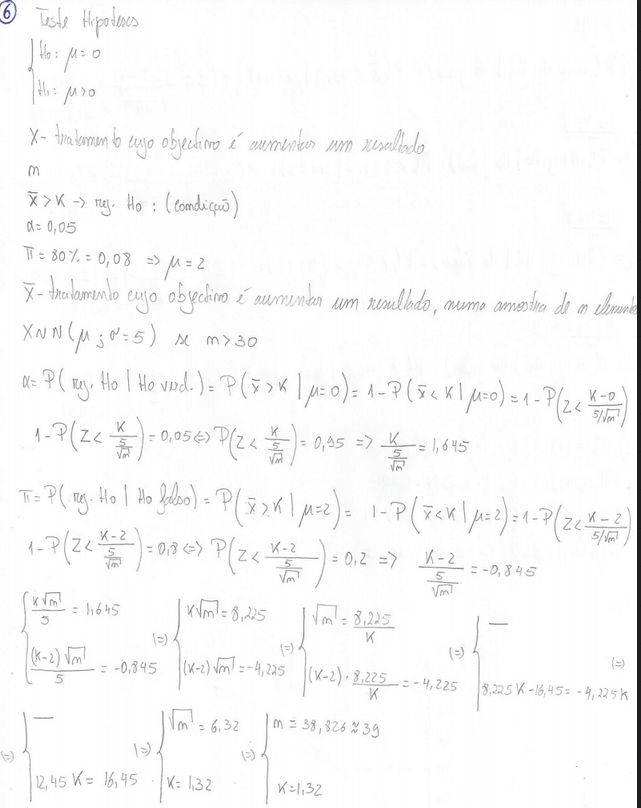 6 Teste Hipoteses
H0: μ = 0
H1: μ > 0
X - tratamento cujo objectivo é aumentar um resultado
m
x̄ > K → rej. H0: (condição)
α = 0,05
π = 80% = 0,08 => μ = 2
X̄ - tratamento cujo objectivo é aumentar um resultado, numa amostra de n elementos
X ~ N(μ; σ = 5) se m > 30
α = P(rej. H0 | H0 verd.) = P(x̄ > K | μ = 0) = 1 - P(x̄ < K | μ = 0) = 1 - P(Z < (K - 0)/(5/√m))
1 - P(Z < K/(5/√m)) = 0,05 <=> P(Z < K/(5/√m)) = 0,95 => K/(5/√m) = 1,645
π = P(rej. H0 | H0 falso) = P(x̄ > K | μ = 2) = 1 - P(x̄ < K | μ = 2) = 1 - P(Z < (K - 2)/(5/√m))
1 - P(Z < (K - 2)/(5/√m)) = 0,8 <=> P(Z < (K - 2)/(5/√m)) = 0,2 => (K - 2)/(5/√m) = -0,845
K√m/5 = 1,645 (=) K√m = 8,225 (=) √m = 8,225/K (=) — (=)
(K-2)√m/5 = -0,845 (K-2)√m = -4,225 (K-2) · 8,225/K = -4,225 8,225K - 16,45 = -4,225K
(=) — (=) √m = 6,32 (=) m = 38,826 ≈ 39
12,45 K = 16,45 K = 1,32 K = 1,32